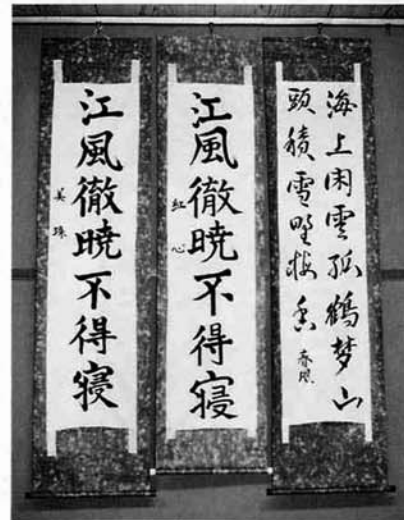 海上閑雲孤鶴梦山
頭積雪野梅香
江風徹暁不得寝
紅心
江風徹暁不得寝
美珠